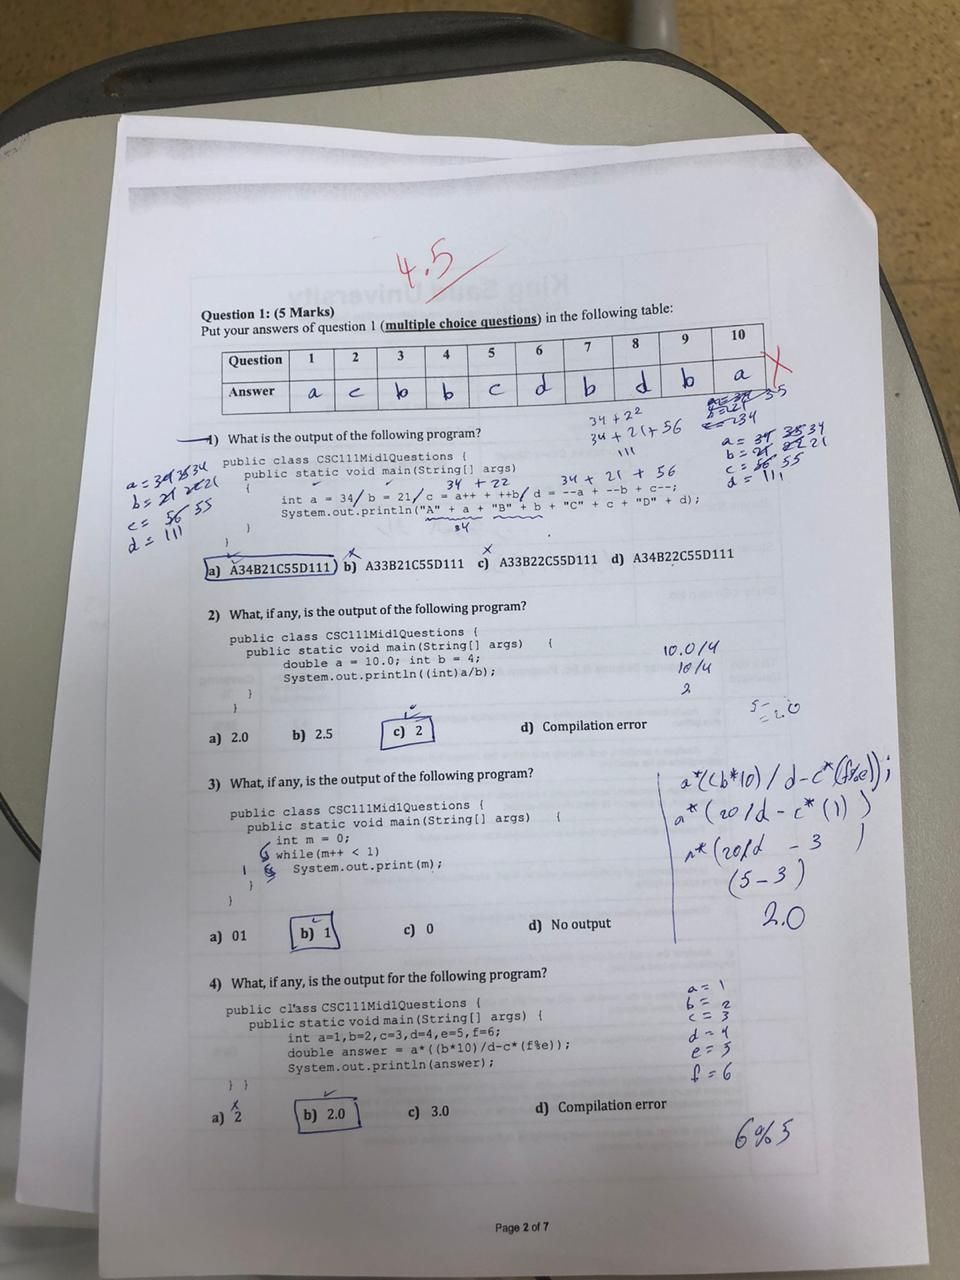 4.5
Question 1: (5 Marks)
Put your answers of question 1 (multiple choice questions) in the following table:
Question 1 2 3 4 5 6 7 8 9 10
Answer a c b b c d b d b a X
34 + 22
34 + 21 + 56
111
1) What is the output of the following program?
public class CSC111Mid1Questions {
public static void main(String[] args)
{
34 + 22 34 + 21 + 56
int a = 34/ b = 21/ c = a++ + ++b/ d = --a + --b + c--;
System.out.println("A" + a + "B" + b + "C" + c + "D" + d);
34
}
}
a = 34 35 34
b = 21 22 21
c = 56 55
d = 111
a = 34 35 34
b = 21 22 21
c = 56 55
d = 111
a) A34B21C55D111 b) A33B21C55D111 c) A33B22C55D111 d) A34B22C55D111
2) What, if any, is the output of the following program?
public class CSC111Mid1Questions {
public static void main(String[] args) {
double a = 10.0; int b = 4;
System.out.println((int)a/b);
}
}
10.0/4
10/4
2
a) 2.0 b) 2.5 c) 2 d) Compilation error
3) What, if any, is the output of the following program?
public class CSC111Mid1Questions {
public static void main(String[] args) {
int m = 0;
while(m++ < 1)
1 System.out.print(m);
}
}
a) 01 b) 1 c) 0 d) No output
a*((b*10)/d-c*(f%e));
a*(20/d - c*(1))
a*(20/d - 3)
(5-3)
2.0
4) What, if any, is the output for the following program?
public class CSC111Mid1Questions {
public static void main(String[] args) {
int a=1,b=2,c=3,d=4,e=5,f=6;
double answer = a*((b*10)/d-c*(f%e));
System.out.println(answer);
} }
a = 1
b = 2
c = 3
d = 4
e = 5
f = 6
a) 2 b) 2.0 c) 3.0 d) Compilation error
6%5
Page 2 of 7